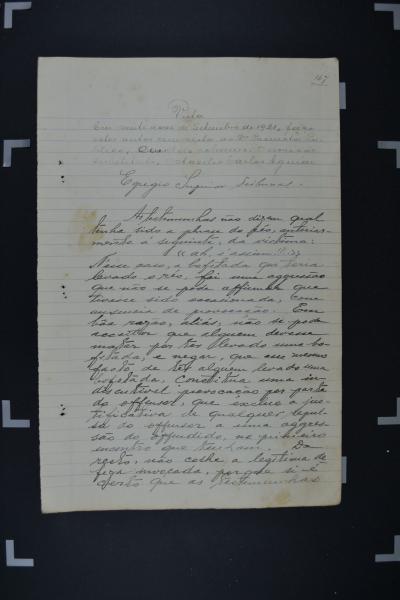 167
Vista
Em vinte e de Setembro de 1921, faço
estes autos com vista ao Dr. Promotor Pu-
blico. Eu,
substituto,
Egregio Superior Tribunal.
As testemunhas não dizem qual
tenha sido a phrase do réo, anterior-
mente á seguinte, da victima:
"ah, é assim!!"
Nesse caso, a bofetada que teria
levado o réo, foi uma aggressão
que não se pode affirmar que
tivesse sido occasionada, com
ausencia de provocação. Em
bôa razão, aliás, não se pode
acceitar que alguem devesse
matar por ter levado uma bo-
fetada, e negar, que o mesmo
facto de ter alguem levado uma
bofetada, constitua uma in-
discutivel provocação por parte
do offensor, que exclue a jus-
tificativa de qualquer repul-
sa do offensor a uma aggres-
são do offendido, no primeiro
encontro que tenham. De
resto, não colhe a legitima de-
feza invocada, porque si é
certo que as testemunhas